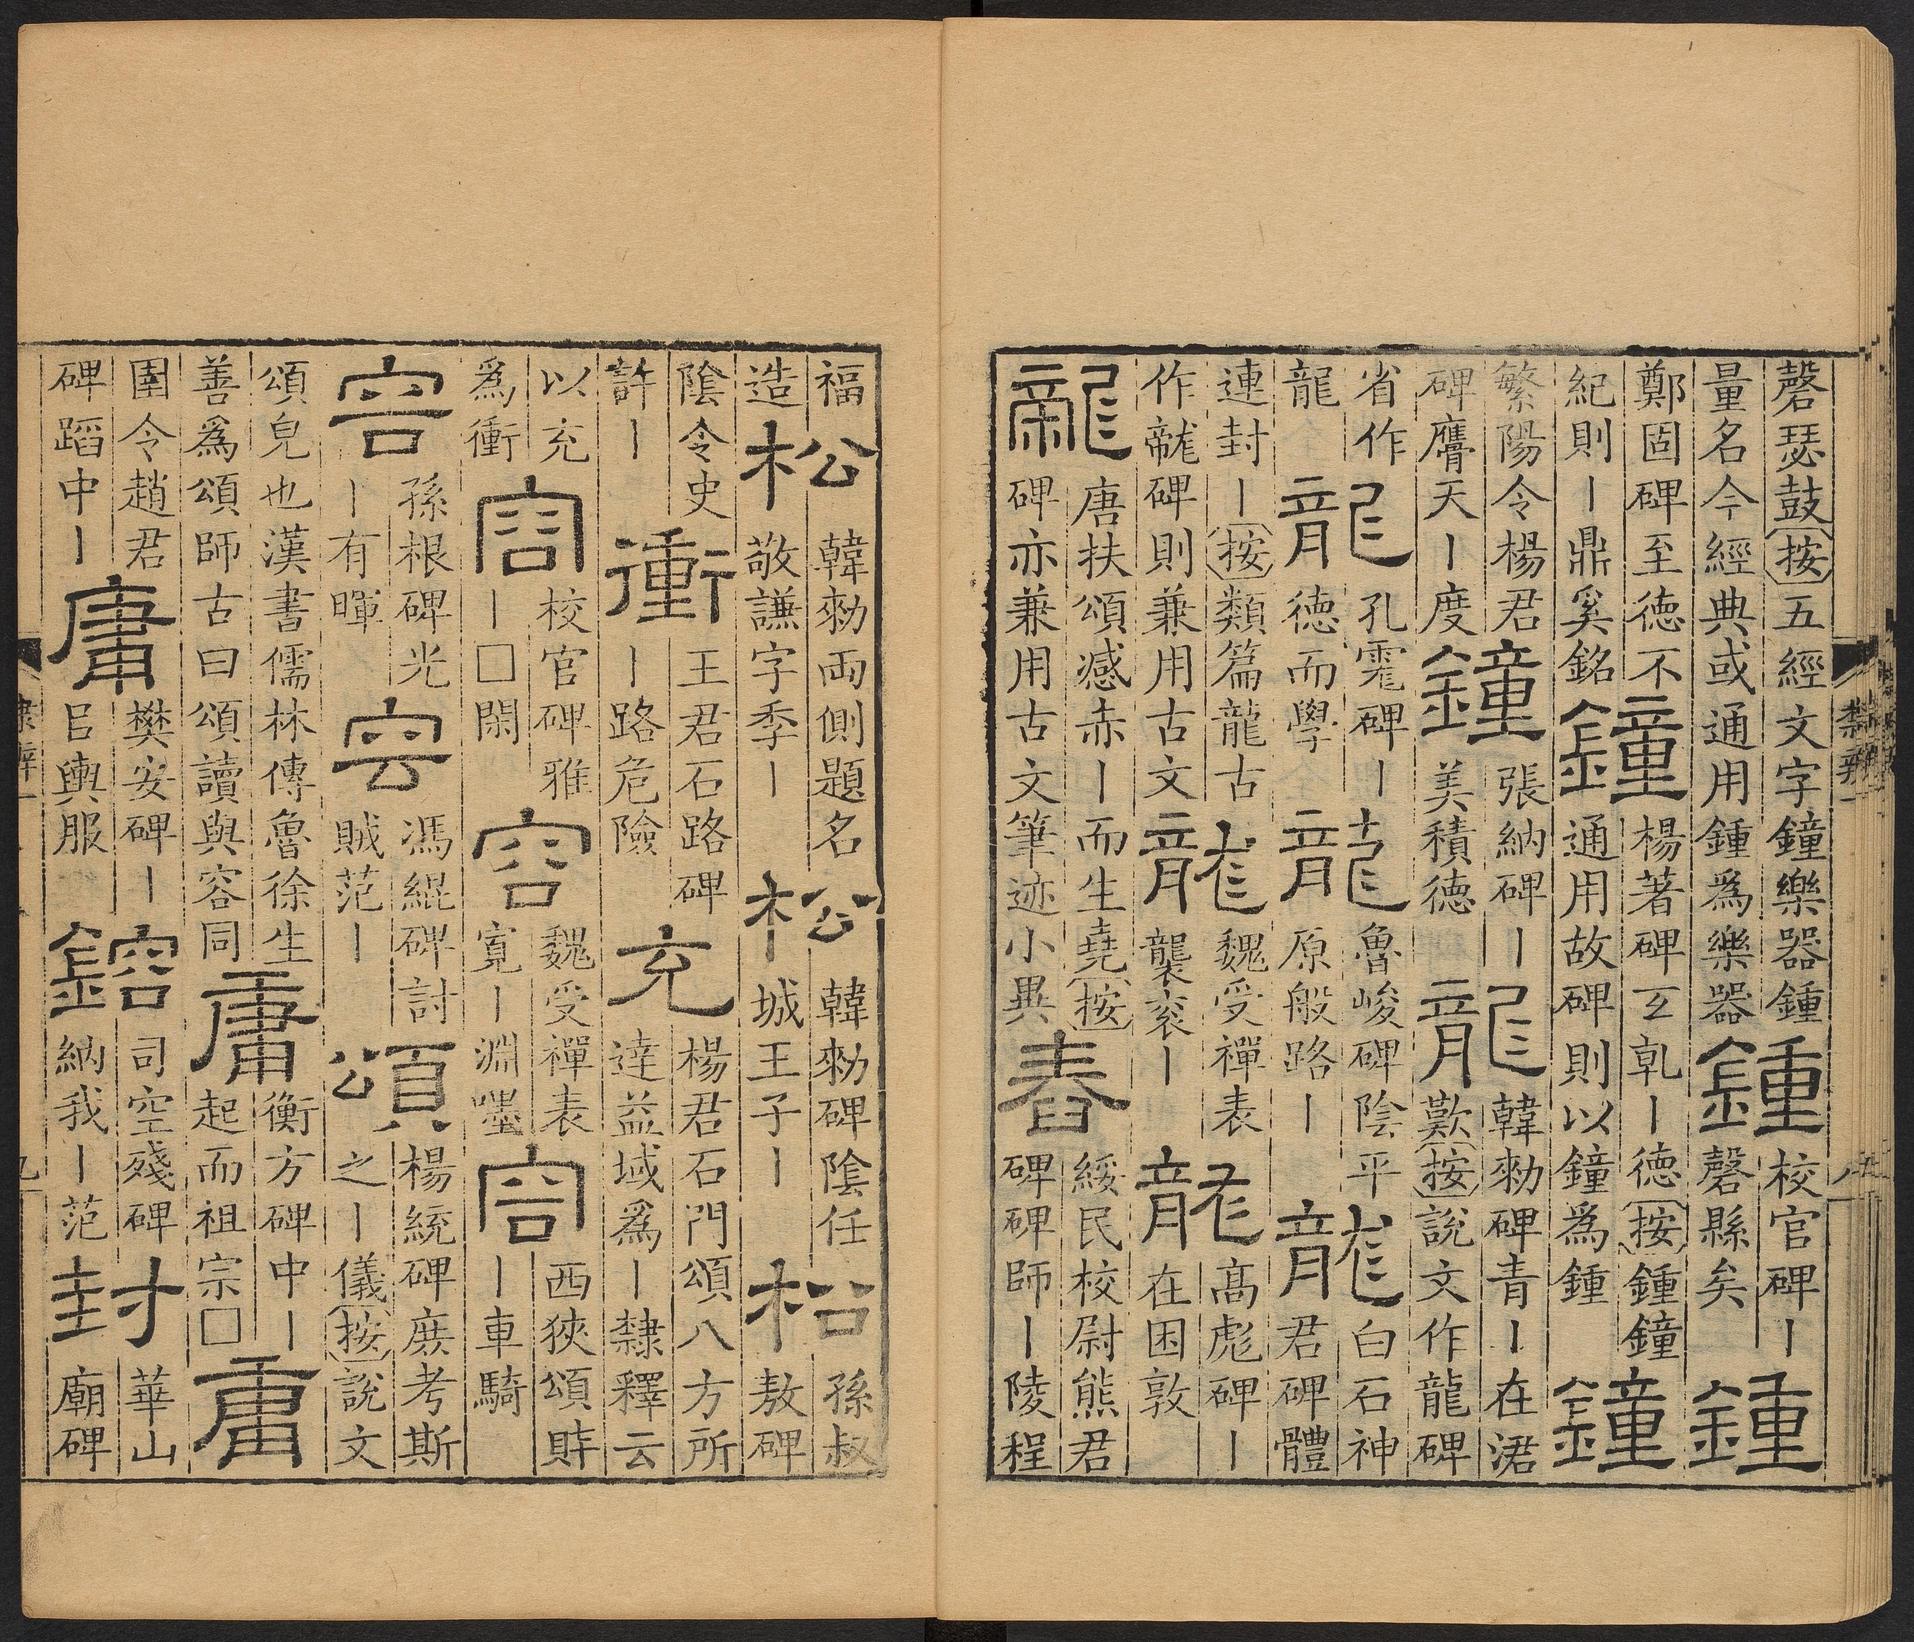 磬瑟鼓按五經文字鐘樂器鍾
量名今經典或通用鍾爲樂器
鍾
校官碑丨
磬縣矣
鍾
鄭固碑至德不
紀則丨鼎奚銘
鐘
楊著碑𠃵乹丨德按鍾鐘
通用故碑則以鐘爲鍾
鐘
繁陽令楊君
碑膺天丨度
鐘
張納碑丨
美積德
龍
韓勑碑青丨在涒
歎按說文作龍碑
省作
龍
龍
孔霮碑丨
德而學
龍
魯峻碑陰平
原般路丨
龍
白石神
君碑體
連封丨按類篇龍古
作竜碑則兼用古文
龍
魏受禪表
襲衮丨
龍
高彪碑丨
在困敦
龍
唐扶頌感赤丨而生堯按
碑亦兼用古文筆迹小異
舂
綏民校尉熊君
碑碑師丨陵程
隸辨一
福
造
松
韓勑兩側題名
敬謙字季丨
松
韓勑碑陰任
城王子丨
松
孫叔
敖碑
陰令史
許丨
衝
王君石路碑
丨路危險
充
楊君石門頌八方所
達益域爲丨隸釋云
以充
爲衝
容
校官碑雅
丨□閑
容
魏受禪表
寬丨淵嘿
容
西狹頌
丨車騎
容
孫根碑光
丨有暉
容
馮緄碑討
賊范丨
頌
楊統碑庶考斯
之丨儀按說文
頌皃也漢書儒林傳魯徐生
善爲頌師古曰頌讀與容同
庸
衡方碑中丨
起而祖宗□
庸
圉令趙君
碑蹈中丨
庸
樊安碑丨
㠯輿服
鎔
司空殘碑
納我丨范
封
華山
廟碑